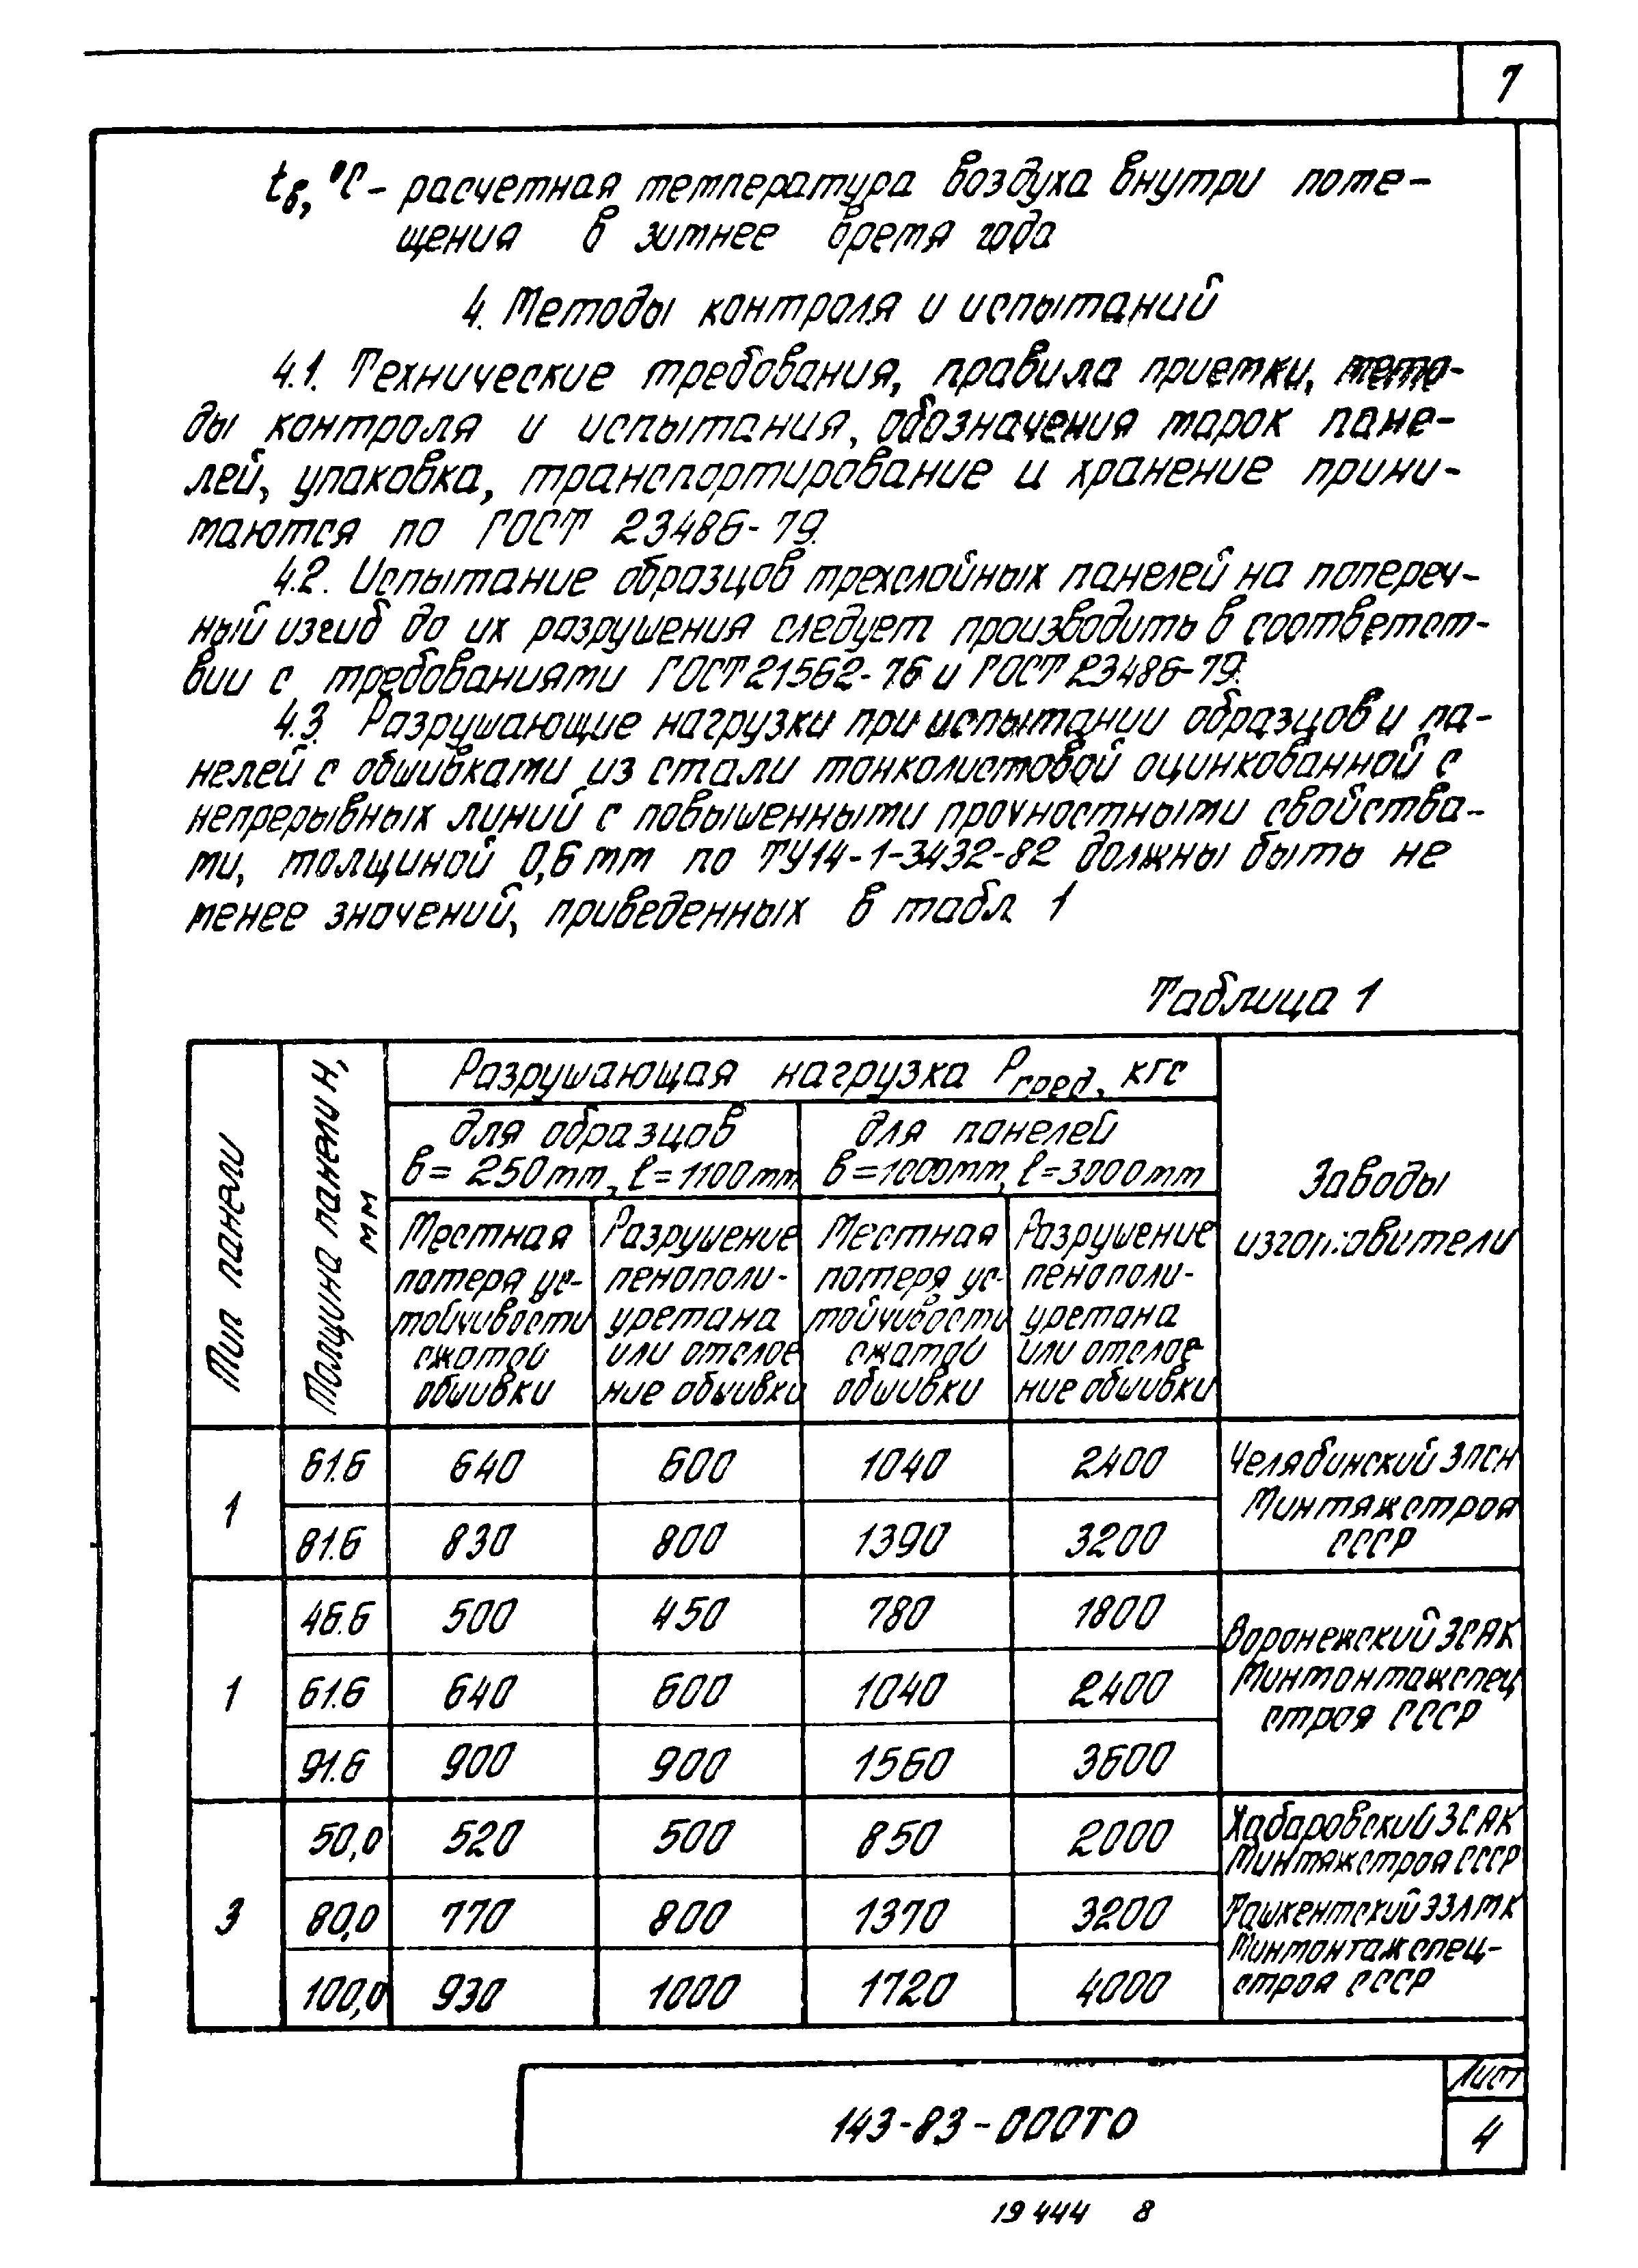 7
tв, °С – расчетная температура воздуха внутри поме-
щения в зимнее время года
4. Методы контроля и испытаний
4.1. Технические требования, правила приемки, мето-
ды контроля и испытания, обозначения марок пане-
лей, упаковка, транспортирование и хранение прини-
маются по ГОСТ 23486-79.
4.2. Испытание образцов трехслойных панелей на попереч-
ный изгиб до их разрушения следует производить в соответст-
вии с требованиями ГОСТ 21562-76 и ГОСТ 23486-79.
4.3. Разрушающие нагрузки при испытании образцов и па-
нелей с обшивками из стали тонколистовой оцинкованной с
непрерывных линий с повышенными прочностными свойства-
ми, толщиной 0,6 мм по ТУ14-1-3432-82 должны быть не
менее значений, приведенных в табл. 1
Таблица 1
Тип панели
Толщина панели H,
мм
Разрушающая нагрузка Рсред., кгс
для образцов
в = 250мм, ℓ=1100мм
для панелей
в=1000мм, ℓ=3000мм
Заводы
изготовители
Местная
потеря ус-
тойчивости
сжатой
обшивки
Разрушение
пенополи-
уретана
или отслое
ние обшивки
Местная
потеря ус-
тойчивости
сжатой
обшивки
Разрушение
пенополи-
уретана
или отслое-
ние обшивки
1
61.6 640 600 1040 2400
81.6 830 800 1390 3200
Челябинский ЗПСН
Минтяжстроя
СССР
1
46.6 500 450 780 1800
61.6 640 600 1040 2400
91.6 900 900 1560 3600
Воронежский ЗСАК
Минмонтажспец
строя СССР
3
50,0 520 500 850 2000
80,0 770 800 1370 3200
100,0 930 1000 1720 4000
Хабаровский ЗСАК
Минтяжстроя СССР
Ташкентский ЭЗЛМК
Минмонтажспец-
строя СССР
143-83-000ТО
Лист
4
19444 8